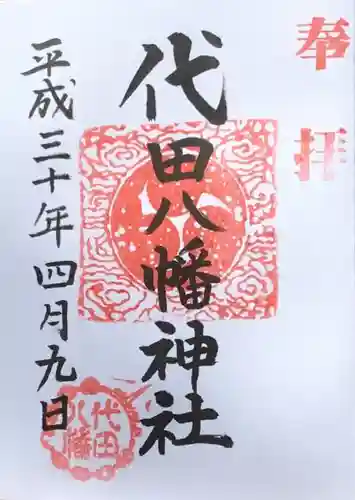 奉拝
代田八幡神社
平成三十年四月九日
代田八幡